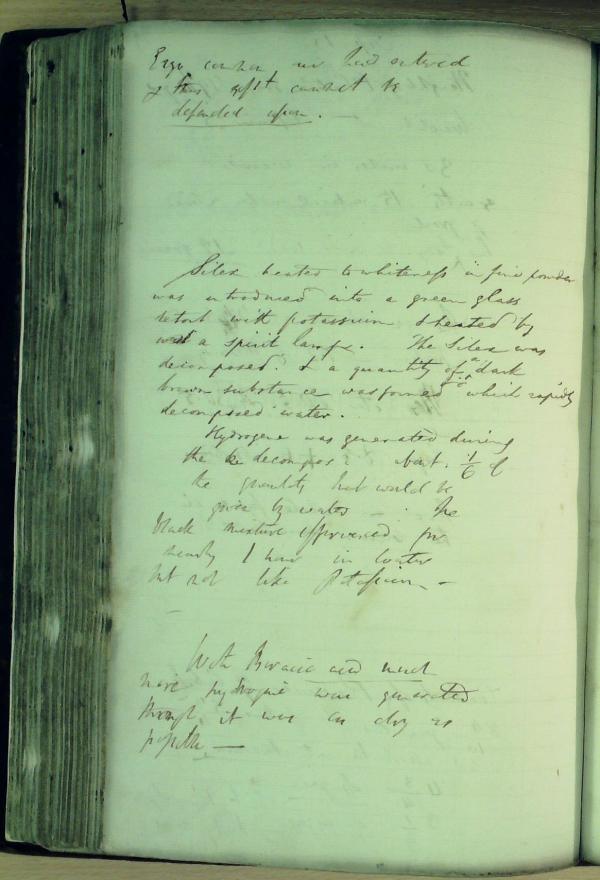 Ergo common air had entered
& thus expt cannot be
depended upon.
Silex heated to whiteness in fine powder
was introduced into a green glass
retort with potassium & heated by
a spirit lamp. The Silex was
decomposed. & a quantity of a dark
brown substance was formed which rapidly
decomposed water.
Hydrogene was generated during
the decompos: about 1/6 of
the quantity that would be
given by water — . The
black mixture effervesced for
nearly 1 hour in water
but not like Potassium —
With Boracic acid much
more hydrogene was generated
though it was as dry as
possible —